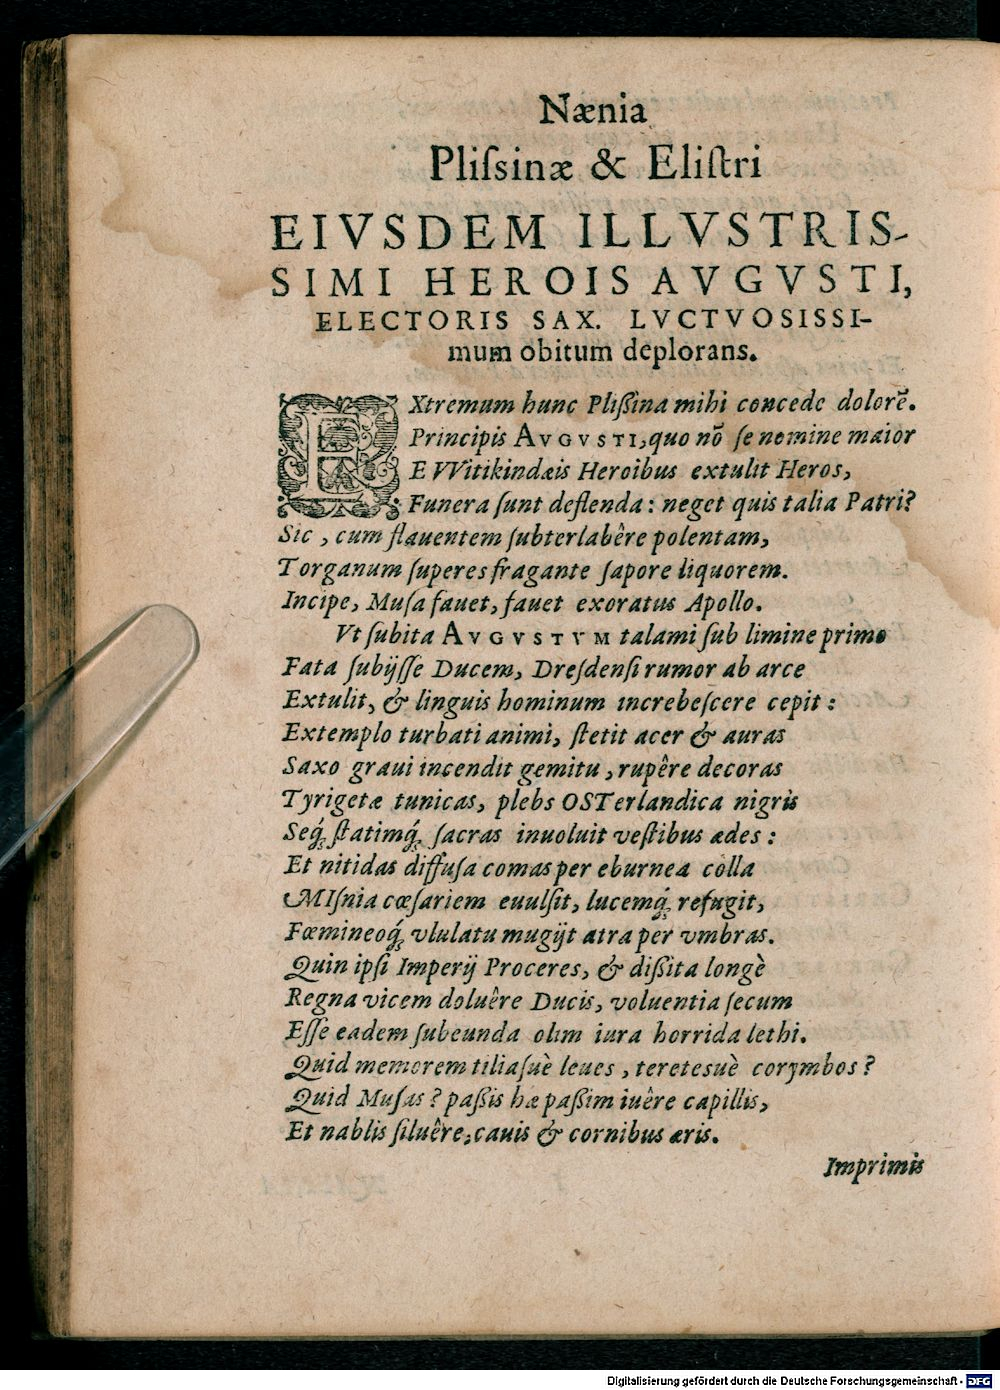 Nænia
Pliſsinæ & Eliſtri
EIVSDEM ILLVSTRIS-
SIMI HEROIS AVGVSTI,
ELECTORIS SAX. LVCTVOSISSI-
mum obitum deplorans.
EXtremum hunc Plißina mihi concede dolorē.
Principis AVGVSTI, quo nō ſe nomine maior
E VVitikindæis Heroibus extulit Heros,
Funera ſunt deflenda: neget quis talia Patri?
Sic, cum flauentem ſubterlabêre polentam,
Torganum ſuperes fragante ſapore liquorem.
Incipe, Muſa fauet, fauet exoratus Apollo.
Vt ſubita AVGVSTVM talami ſub limine primo
Fata ſubijſſe Ducem, Dreſdenſi rumor ab arce
Extulit, & linguis hominum increbeſcere cepit:
Extemplo turbati animi, ſtetit acer & auras
Saxo graui incendit gemitu, rupêre decoras
Tyrigetæ tunicas, plebs OSTerlandica nigris
Seq́; ſtatimq́; ſacras inuoluit veſtibus ædes:
Et nitidas diffuſa comas per eburnea colla
MIſnia cœſariem euulſit, lucemq́; refugit,
Fœmineoq́; vlulatu mugijt atra per vmbras.
Quin ipſi Imperij Proceres, & dißita longè
Regna vicem doluêre Ducis, voluentia ſecum
Eſſe eadem ſubeunda olim iura horrida lethi.
Quid memorem tiliaſuè leues, teretesuè corymbos?
Quid Muſas? paßis hæ paßim iuêre capillis,
Et nablis ſiluêre, cauis & cornibus æris.
Imprimis
Digitalisierung gefördert durch die Deutsche Forschungsgemeinschaft - DFG